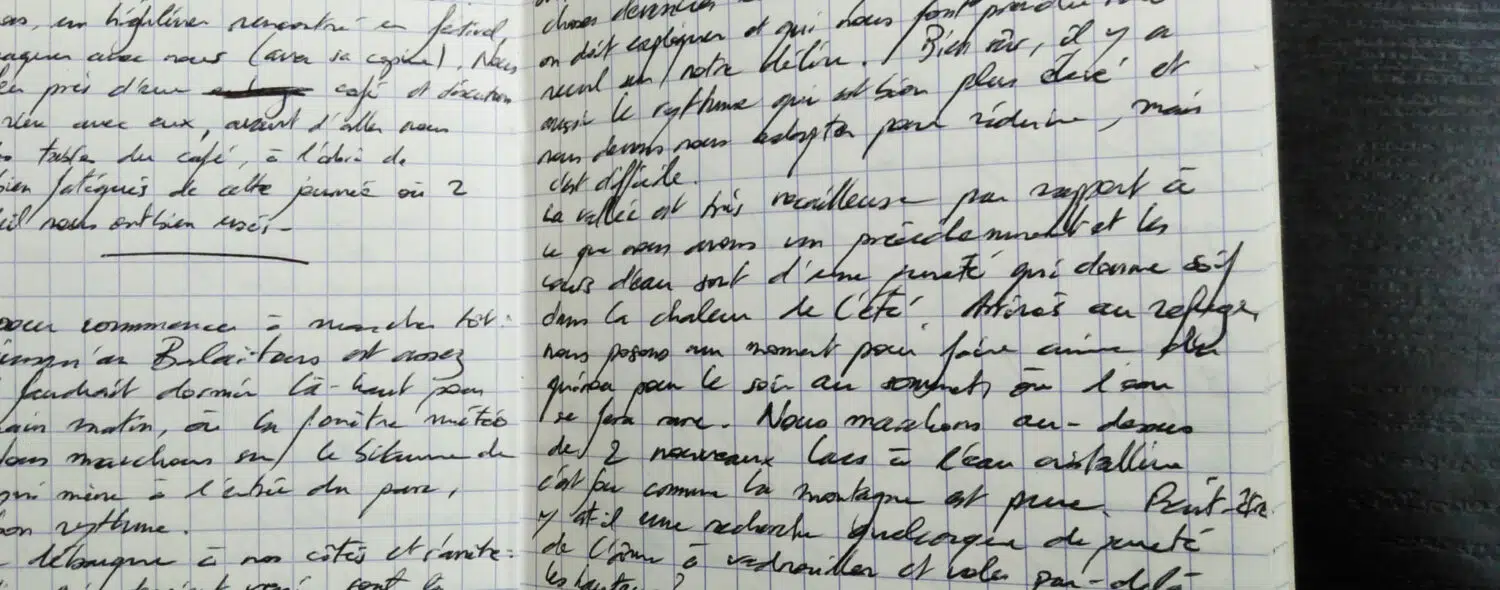 as, un highliner rencontré en festival,
avec nous (avec sa copine). Nous
près d'une café et discutons
avec eux, avant d'aller nous
tables du café, à l'abri de
bien fatigués de cette journée où 2
nous ont bien usés.
pour commencer à marcher tôt :
jusqu'au Balaïtous est assez
faudrait dormir là-haut pour
matin, où la fenêtre météo
Nous marchons sur le bitume de
qui mène à l'entrée du parc,
bon rythme.
débarque à nos côtés et s'arrête :
sont la
choses
on doit expliquer et qui nous font prendre
recul sur notre délire. Bien sûr, il y a
aussi le rythme qui est bien plus élevé et
nous devons nous adapter pour réduire, mais
c'est difficile.
La vallée est très rocailleuse par rapport à
ce que nous avons vu précédemment et les
cours d'eau sont d'une pureté qui donne soif
dans la chaleur de l'été. Arrivés au refuge,
nous posons un moment pour faire cuire du
quinoa pour le soir au sommet, où l'eau
se fera rare. Nous marchons au-dessus
de 2 nouveaux lacs à l'eau cristalline
c'est fou comme la montagne est pure. Peut-être
y at-il une recherche quelconque de pureté
de l'âme à vadrouiller et voler par-delà
les